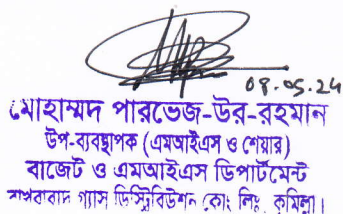 08.05.24
মোহাম্মদ পারভেজ-উর-রহমান
উপ-ব্যবস্থাপক (এমআইএস ও শেয়ার)
বাজেট ও এমআইএস ডিপার্টমেন্ট
বাখরাবাদ গ্যাস ডিস্ট্রিবিউশন কোং লিঃ, কুমিল্লা।